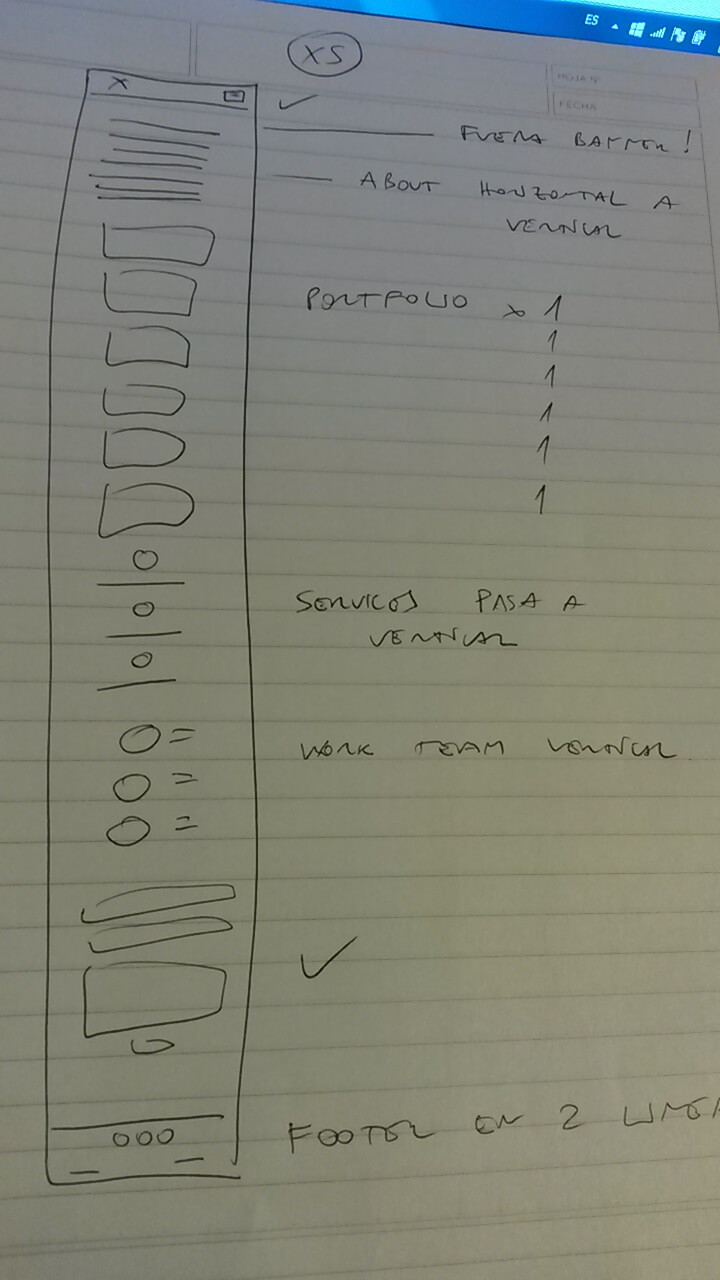 ES
XS
HOJA Nº
FECHA
X
FUERA BANNER!
ABOUT HORIZONTAL A
VERTICAL
PORTFOLIO x 1
1
1
1
1
1
SERVICOS PASA A
VERTICAL
WORK TEAM VERTICAL
FOOTER EN 2 LINEA